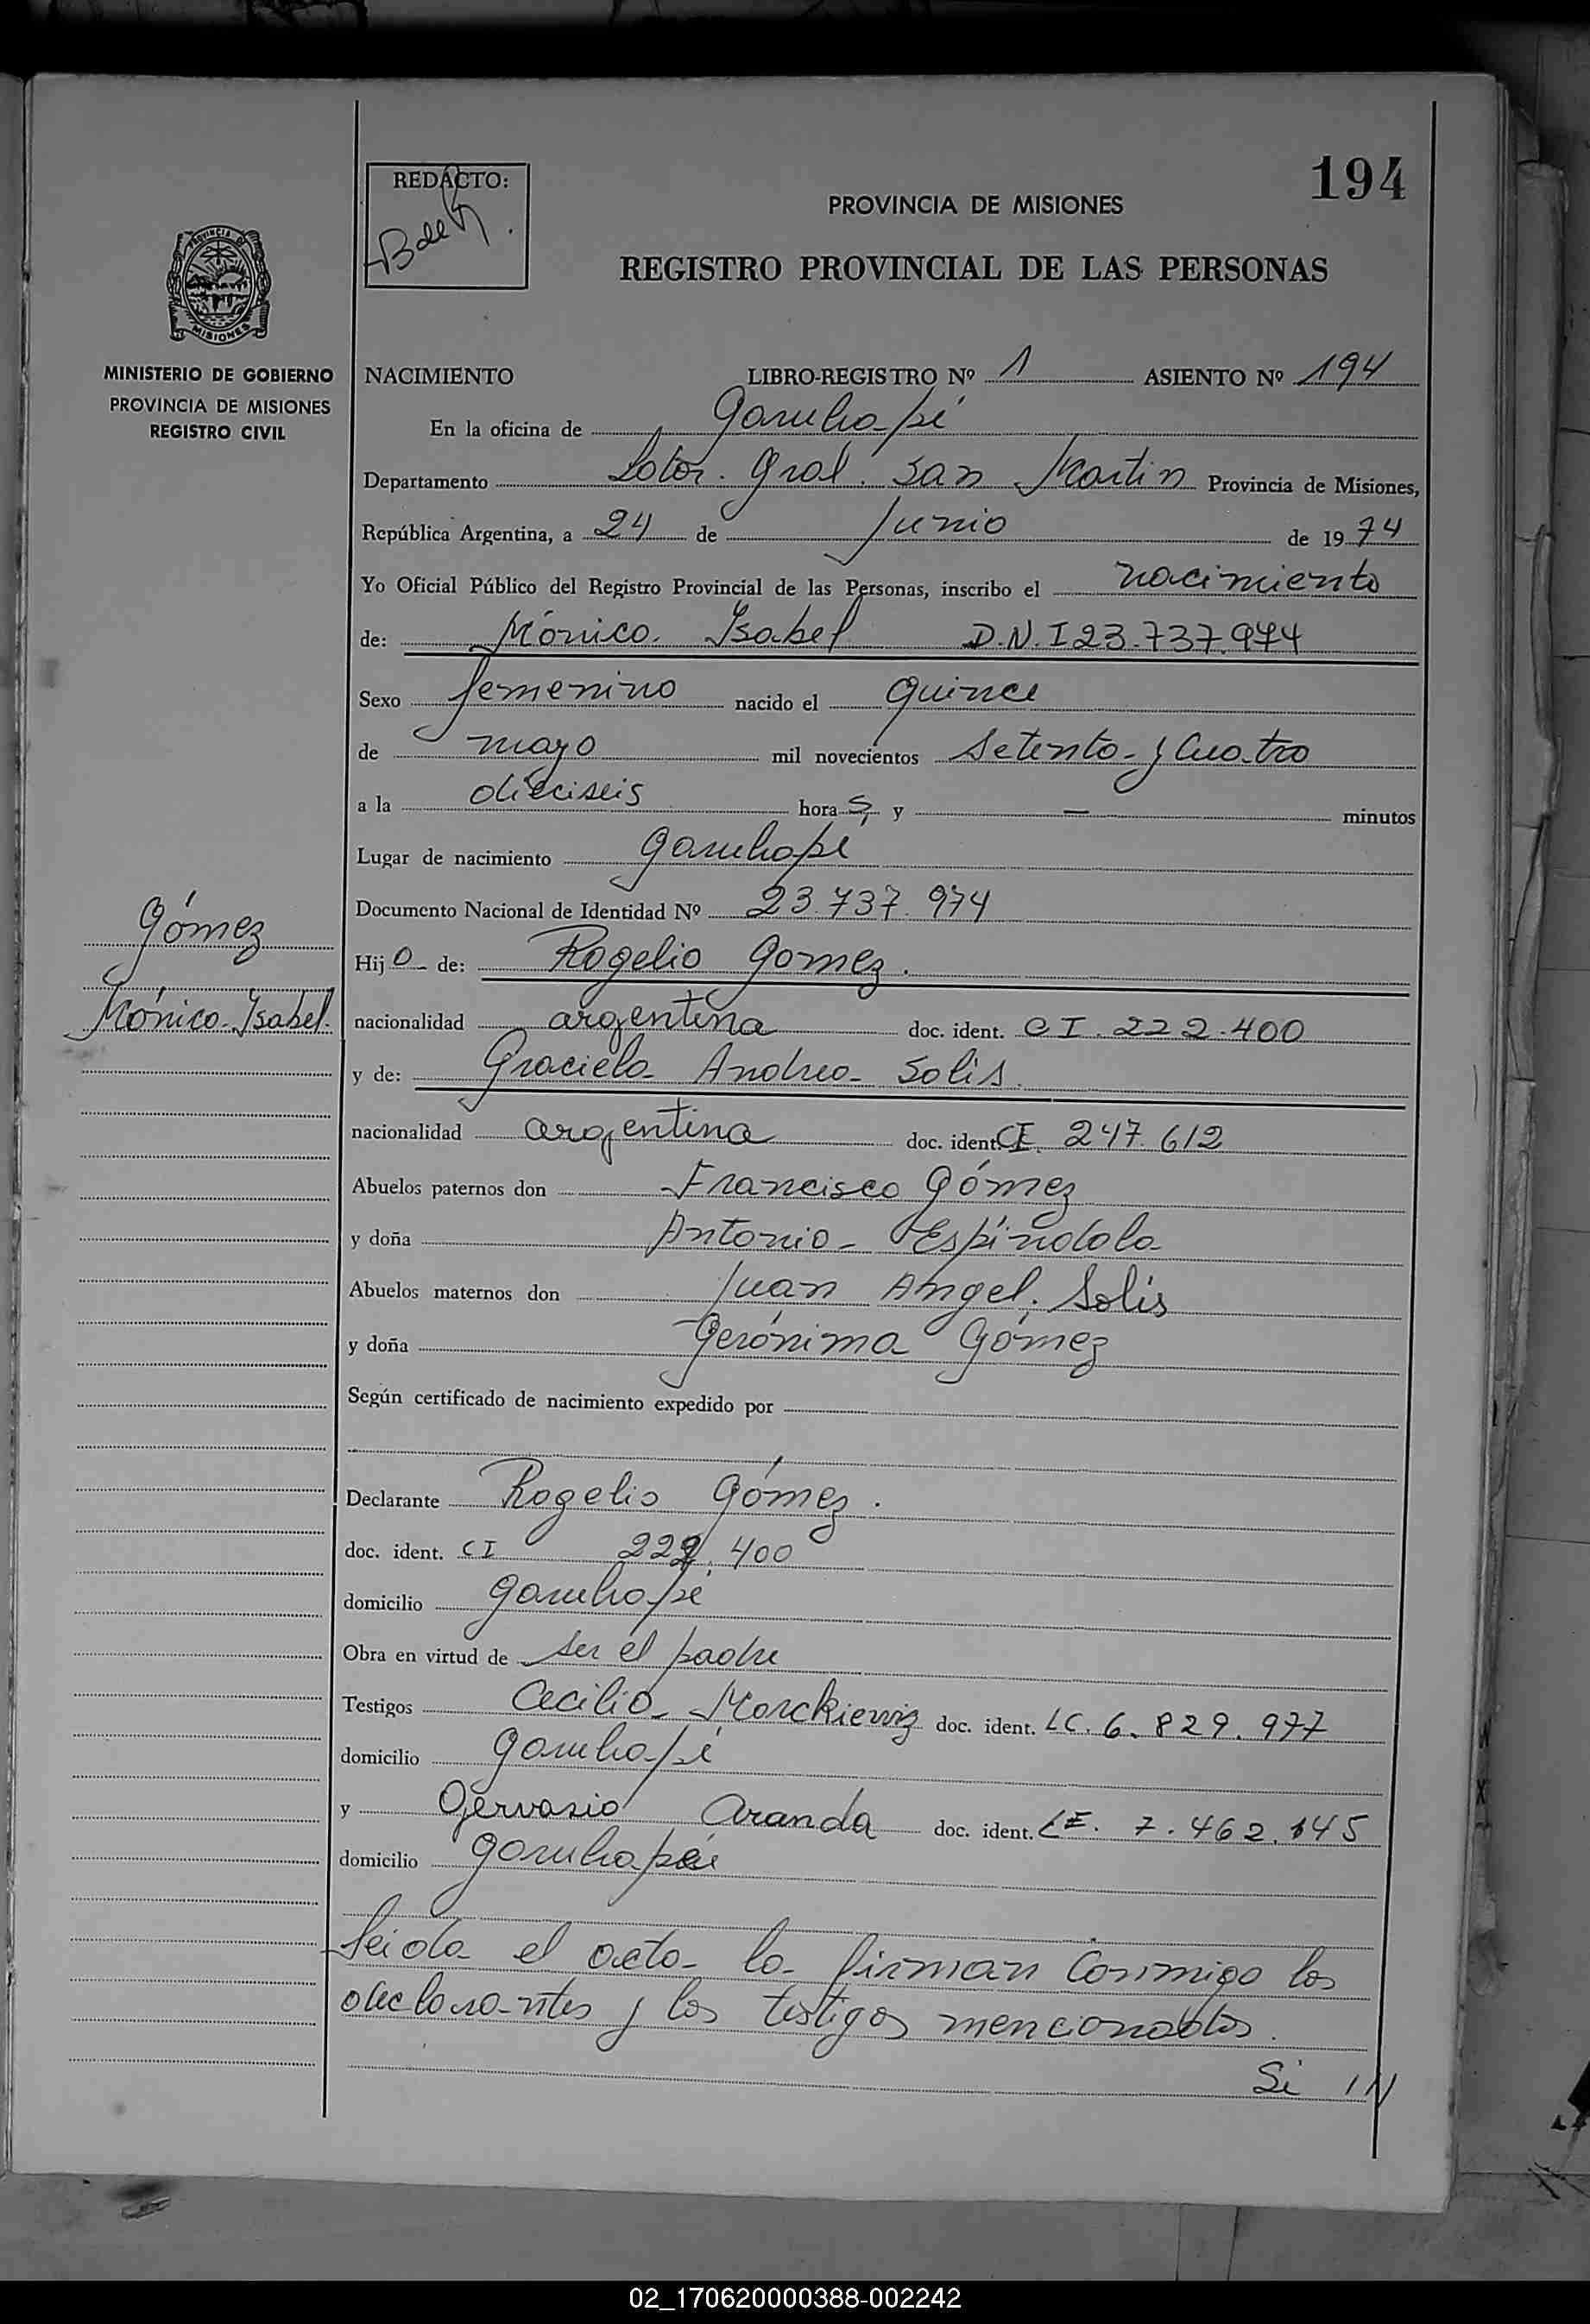 194
REDACTO:
PROVINCIA DE MISIONES
REGISTRO PROVINCIAL DE LAS PERSONAS
PROVINCIA DE MISIONES
MINISTERIO DE GOBIERNO
PROVINCIA DE MISIONES
REGISTRO CIVIL
NACIMIENTO LIBRO-REGISTRO Nº 1 ASIENTO Nº 194
En la oficina de Garuhapé
Departamento Ldor. Gral. San Martin Provincia de Misiones,
República Argentina, a 24 de Junio de 1974
Yo Oficial Público del Registro Provincial de las Personas, inscribo el nacimiento
de: Mónica Isabel D.N.I 23.737.974
Sexo femenino nacido el quince
de mayo mil novecientos Setenta y Cuatro
a la dieciseis hora s y — minutos
Lugar de nacimiento Garuhapé
Documento Nacional de Identidad Nº 23.737.974
Gómez
Mónica Isabel.
Hija de: Rogelio Gomez.
nacionalidad argentina doc. ident. CI. 222.400
y de: Graciela Andrea Solis.
nacionalidad argentina doc. ident. CI. 247.612
Abuelos paternos don Francisco Gómez
y doña Antonia Espíndola
Abuelos maternos don Juan Angel Solis
y doña Gerónima Gómez
Según certificado de nacimiento expedido por
Declarante Rogelio Gómez.
doc. ident. CI 222.400
domicilio Garuhapé
Obra en virtud de ser el padre
Testigos Cecilia Morckiewiz doc. ident. LC. 6.829.977
domicilio Garuhapé
y Gervasio Aranda doc. ident. LE. 7.462.145
domicilio Garuhapé
Leida el acta la firman Conmigo los
declarantes y los testigos mencionados.
Si ///
02_170620000388-002242